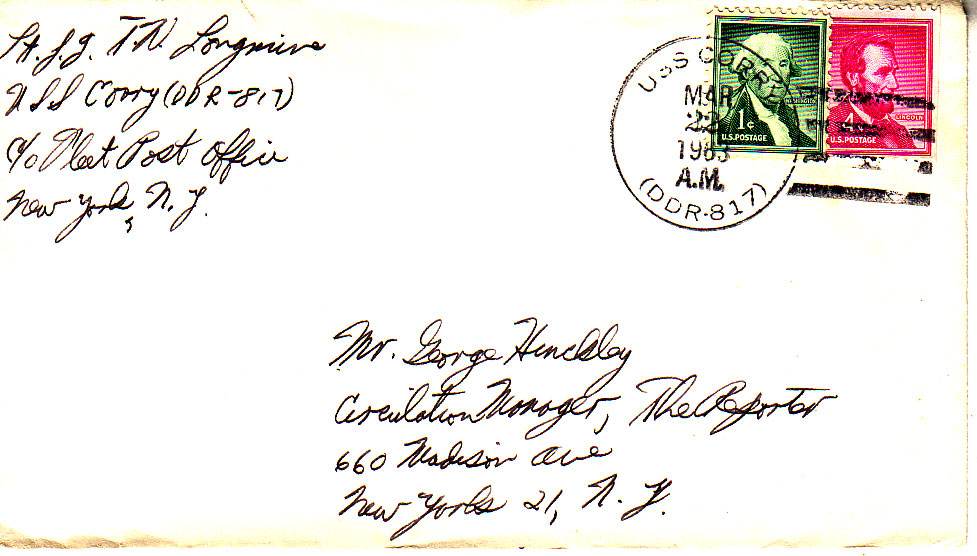 Lt. J.g. T.N. Longmire
USS Corry (DDR-817)
c/o Fleet Post Office
New York, N.Y.
USS CORRY
MAR
22
1963
A.M.
(DDR-817)
WASHINGTON
1¢
U.S. POSTAGE
LINCOLN
U.S. POSTAGE
Mr. George Hinckley
Circulation Manager, The Reporter
660 Madison Ave
New York 21, N.Y.